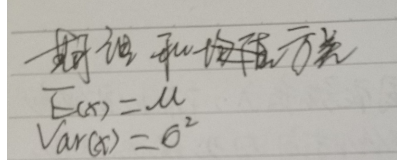 期望和均值方差
E(x)=μ
Var(x)=σ²